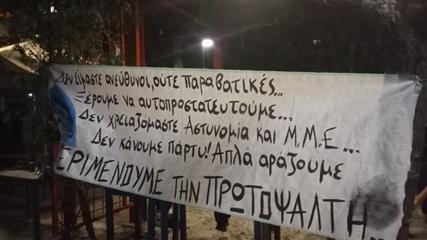 Δεν είμαστε ανεύθυνοι, ούτε παραβατικές...
Ξέρουμε να αυτοπροστατευτούμε...
Δεν χρειαζόμαστε Αστυνομία και Μ.Μ.Ε...
Δεν κάνουμε πάρτυ! Απλά αράζουμε
ΠΕΡΙΜΕΝΟΥΜΕ ΤΗΝ ΠΡΩΤΟΨΑΛΤΗ...